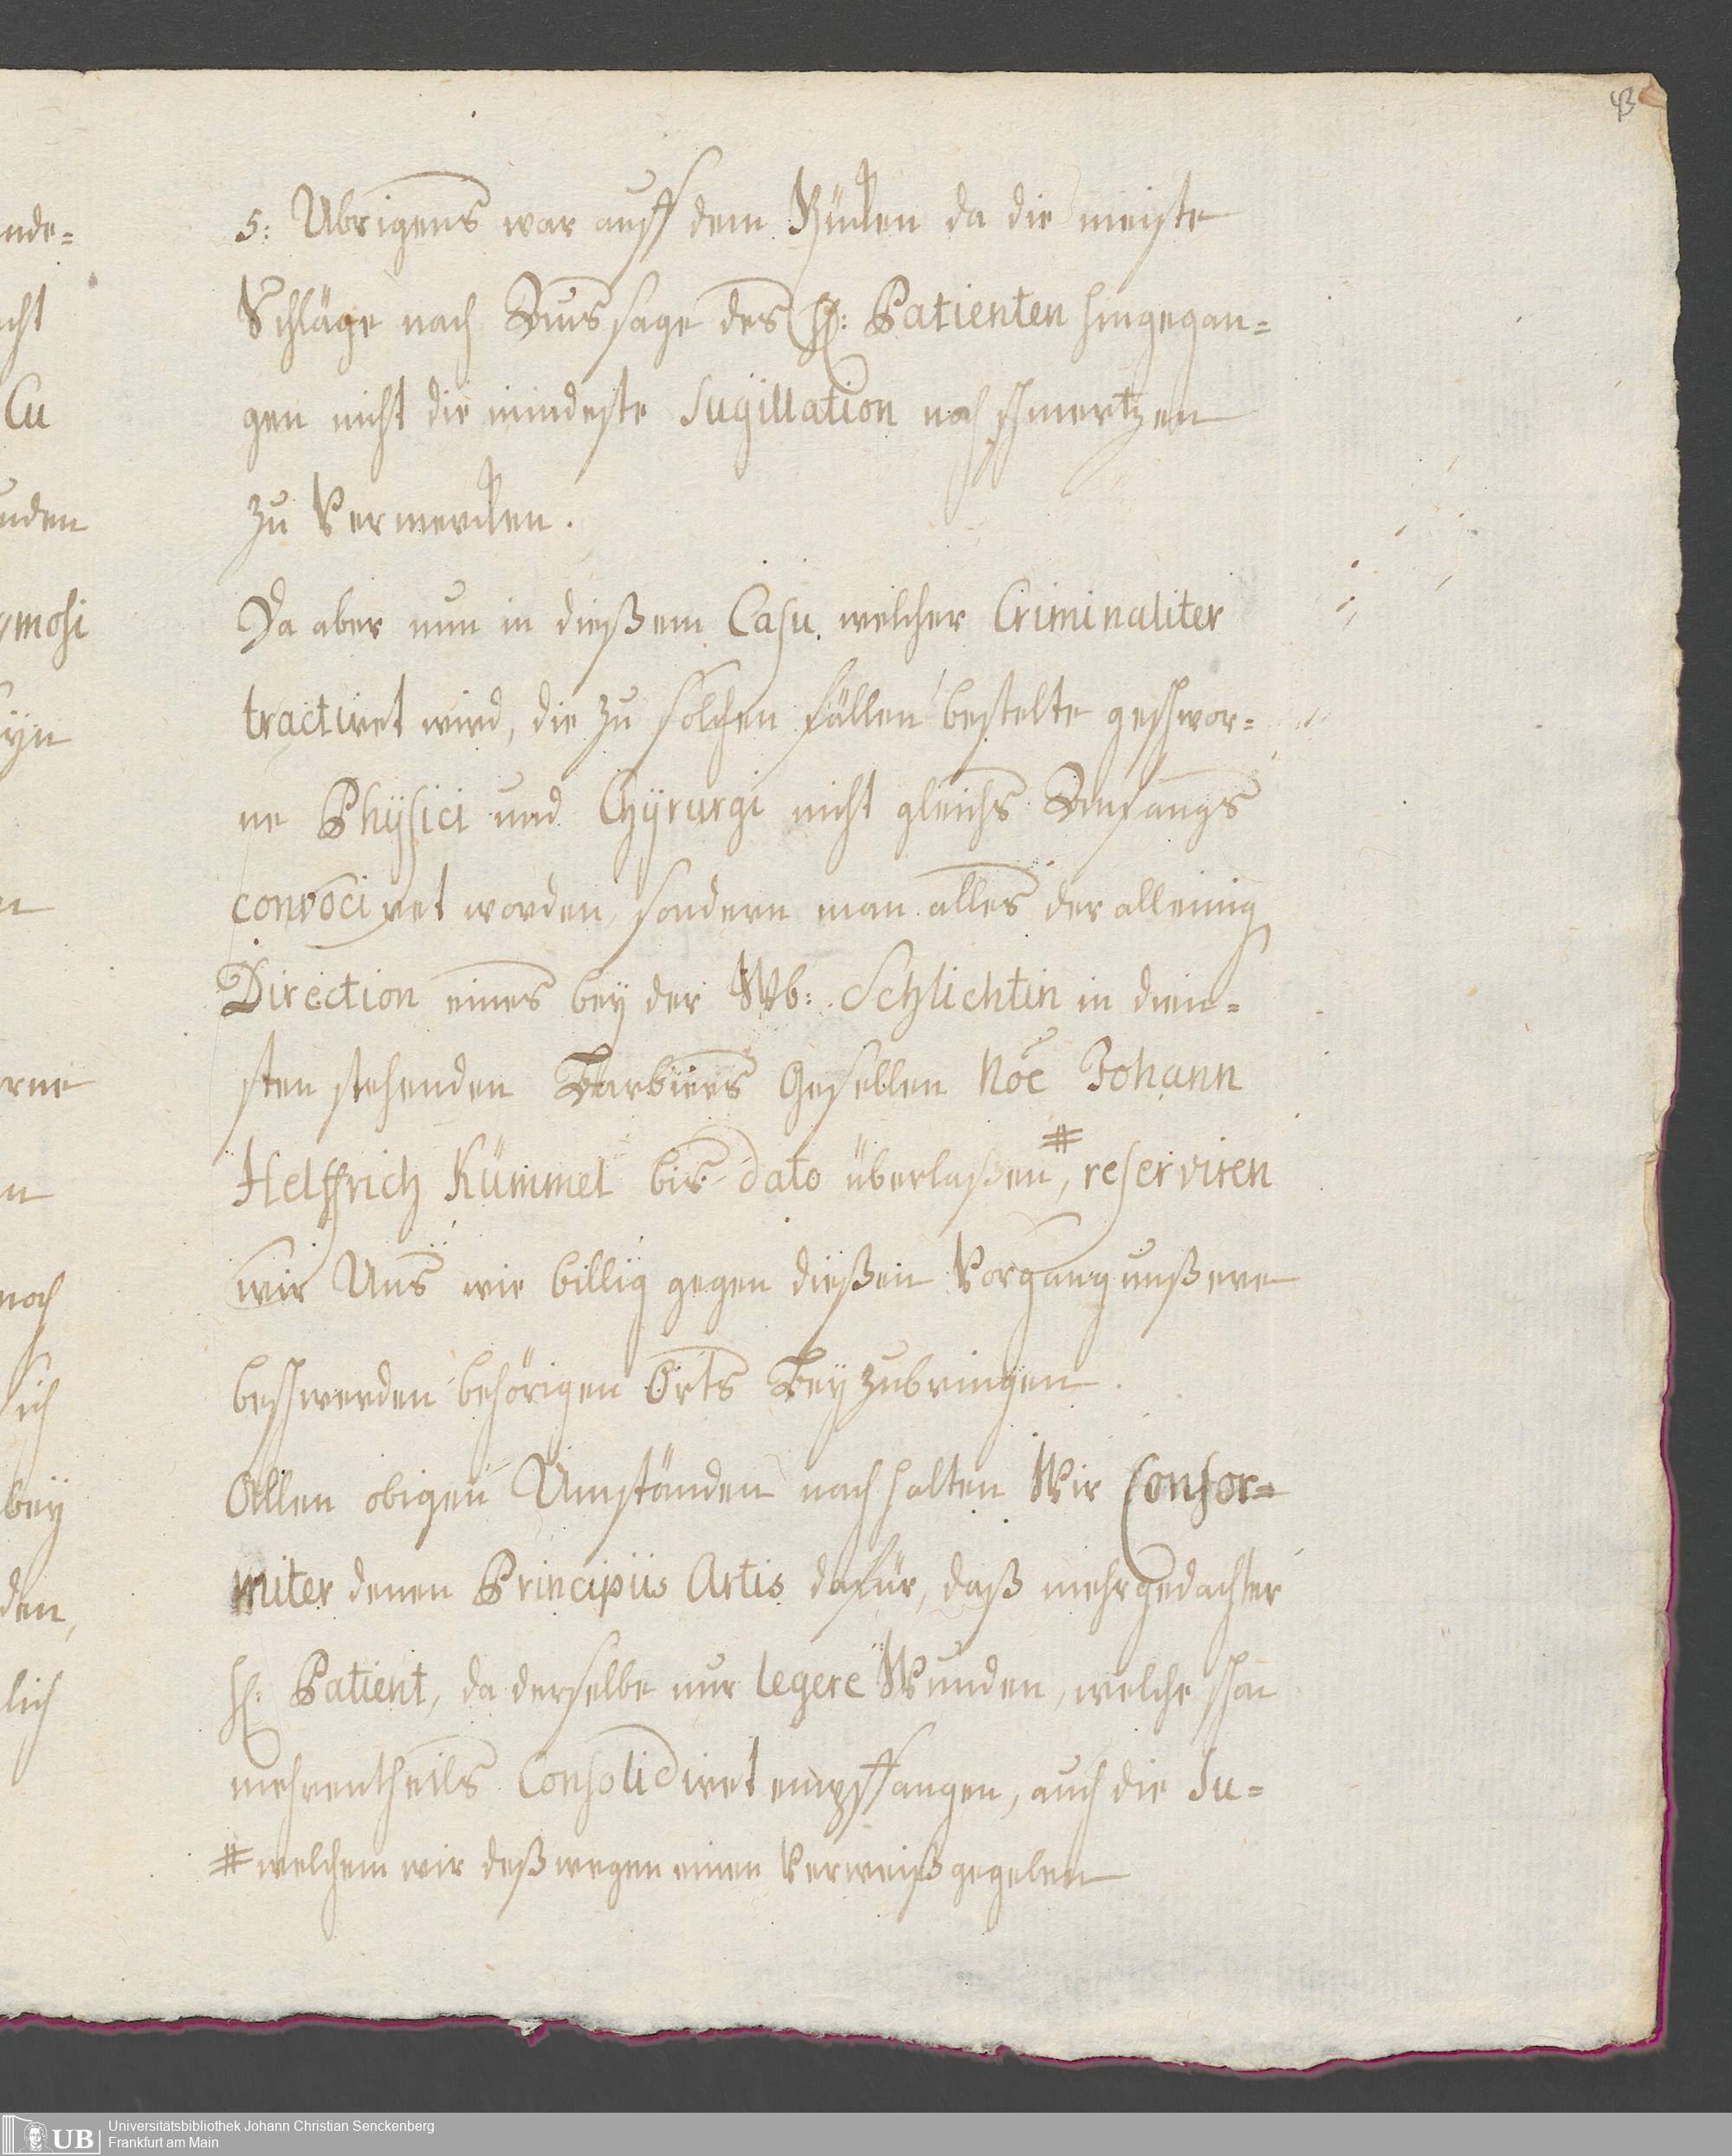 43
5: Ubrigens war auff dem Rücken da die meiste
Schläge nach Aussage des H: Patienten hingegan=
gen nicht die mindeste Sugillation noch schmertzen
zu Vermercken.
Da aber nun in dießem Casu welcher Criminaliter
tractiret wird, die zu solchen fällen bestelte geschwor=
ne Physici und Chyrurgi nicht gleichs Anfangs
convociret worden, sondern man alles der alleinig
Direction eines bey der Wb: Schlichtin in dien=
sten stehenden Barbiers Gesellen Noe Johann
Helffrich Kümmel bis dato überlaßen #, reserviren
wir Uns wie billig gegen dießen Vorgang unßere
beschwerden behörigen Orts Beyzubringen.
Allen obigen Umständen nach halten Wir Confor=
miter denen Principiis Artis dafür, daß mehrgedachter
H: Patient, da derselbe nur legere Wunden, welche schon
mehrentheils Consolidiret empffangen, auch die Su=
# welchem wir deßwegen einen Verweiß gegeben
nde=
cht
Cu
nden
ymosi
eyn
n
rne
n
noch
sich
bey
den,
lich
UB
Universitätsbibliothek Johann Christian Senckenberg
Frankfurt am Main